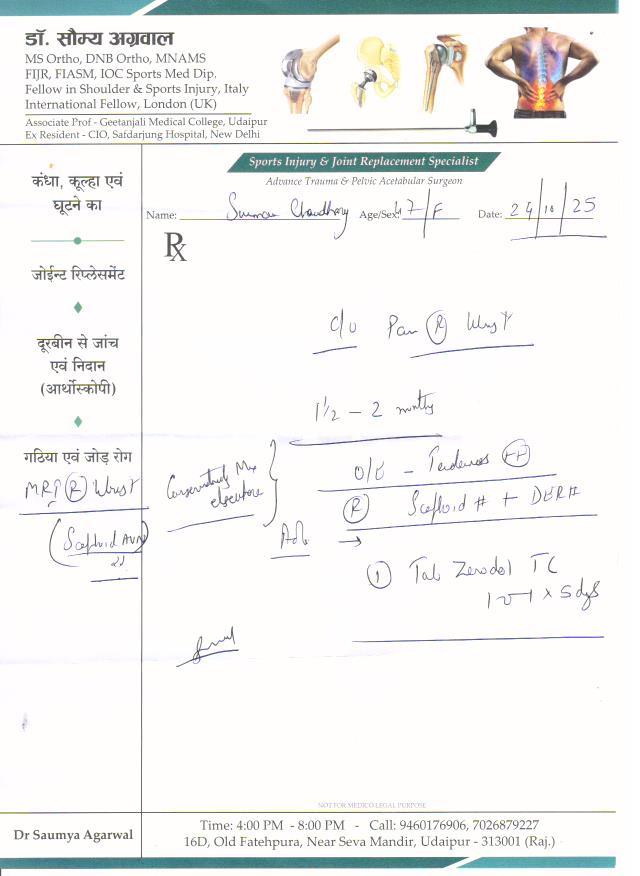 डॉ. सौम्य अग्रवाल
MS Ortho, DNB Ortho, MNAMS
FIJR, FIASM, IOC Sports Med Dip.
Fellow in Shoulder & Sports Injury, Italy
International Fellow, London (UK)
Associate Prof - Geetanjali Medical College, Udaipur
Ex Resident - CIO, Safdarjung Hospital, New Delhi
Sports Injury & Joint Replacement Specialist
Advance Trauma & Pelvic Acetabular Surgeon
Name: Suman Choudhary Age/Sex: 47/F Date: 24/10/25
Rx
कंधा, कूल्हा एवं
घूटने का
जोईन्ट रिप्लेसमेंट
दूरबीन से जांच
एवं निदान
(आर्थोस्कोपी)
गठिया एवं जोड़ रोग
MRI (R) Wrist
(Scaphoid AVN)
C/O Pain (R) Wrist
1 1/2 - 2 months
Conservatively Mx
elsewhere
O/E - Tenderness (++)
(R) Scaphoid # + DER#
Adv →
(1) Tab Zerodol TC
1-0-1 x 5 days
NOT FOR MEDICO LEGAL PURPOSE
Dr Saumya Agarwal
Time: 4:00 PM - 8:00 PM - Call: 9460176906, 7026879227
16D, Old Fatehpura, Near Seva Mandir, Udaipur - 313001 (Raj.)